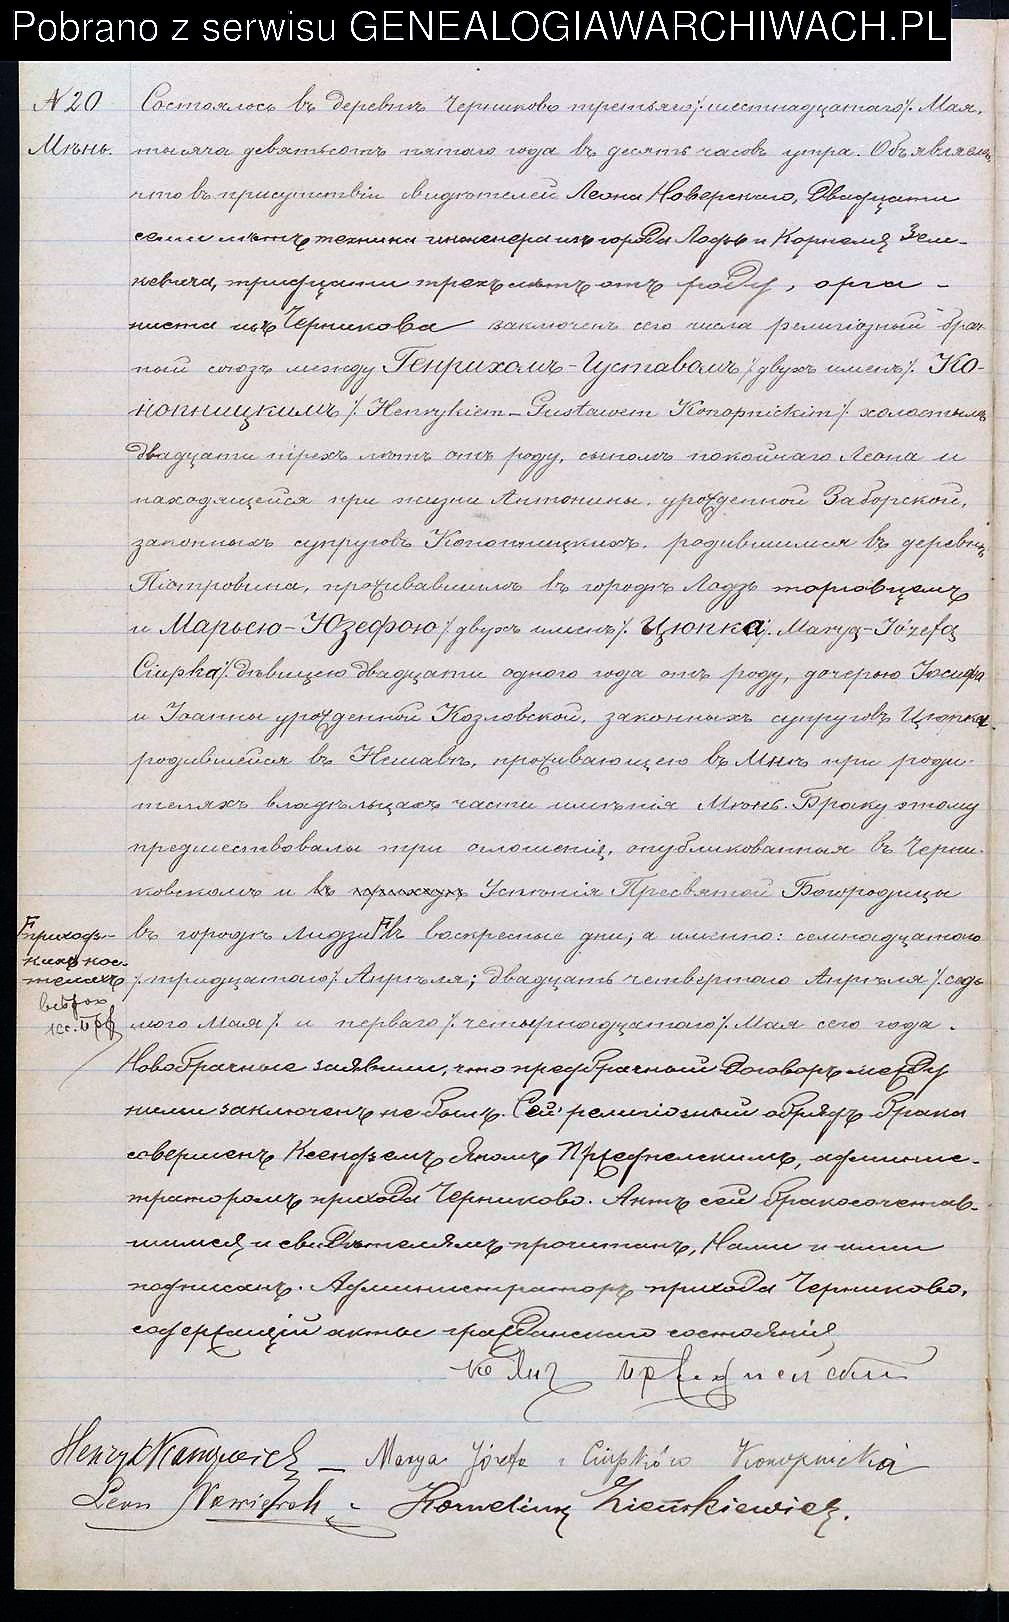 Pobrano z serwisu GENEALOGIAWARCHIWACH.PL
N 20
Мѣнь.
Состоялось въ деревнѣ Черниково третьяго /: шестнадцатаго /: Мая,
тысяча девятьсотъ пятаго года въ десять часовъ утра. Объявляемъ,
что въ присутствіи свидѣтелей Леона Новерскаго, двадцати
семи лѣтъ техника инженера изъ города Лодзь и Корнелія Зен-
кевича, тридцати трехъ лѣтъ отъ роду, орга-
ниста изъ Черникова заключенъ сего числа религіозный брач-
ный союзъ между Генрихомъ-Густавомъ /: двухъ именъ /: Ко-
нопницкимъ /: Henrykiem-Gustawem Konopnickim /: холостымъ
двадцати трехъ лѣтъ отъ роду, сыномъ покойнаго Леона и
находящейся при жизни Антонины, урожденной Заборской,
законныхъ супруговъ Конопницкихъ, родившимся въ деревнѣ
Піотровина, проживавшимъ въ городѣ Лодзь торговцемъ
и Марьею-Юзефою /: двухъ именъ /: Цюпка /: Marya-Józefa
Ciupka /: дѣвицею двадцати одного года отъ роду, дочерью Іосифа
и Іоанны урожденной Козловской, законныхъ супруговъ Цюпка,
родившейся въ Нешавѣ, проживающею въ Мнѣ при роди-
теляхъ владѣльцахъ части имѣнія Мѣнь. Браку этому
предшествовали три оглошенія, опубликованныя въ Черни-
ковскомъ и въ Успенія Пресвятой Богородицы
въ городѣ Лодзи въ воскресные дни; а именно: семнадцатаго
приходс-
кихъ кос-
телахъ
/: тридцатаго /: Апрѣля; двадцать четвертаго Апрѣля /: седь-
мого Мая /: и перваго /: четырнадцатаго /: Мая сего года.
Новобрачные заявили, что предбрачный договоръ между
ними заключенъ не былъ. Сей религіозный обрядъ брака
совершенъ Ксендземъ Яномъ, админис-
траторомъ прихода Черниково. Актъ сей бракосочетав-
шимся и свидѣтелямъ прочитанъ, Нами и ими
подписанъ. Администраторъ прихода Черниково,
содержащій акты гражданскаго состоянія
Кс Янъ
Marya Józefa z Ciupków Konopnicka
Leon
Korneliusz Zienkiewicz.